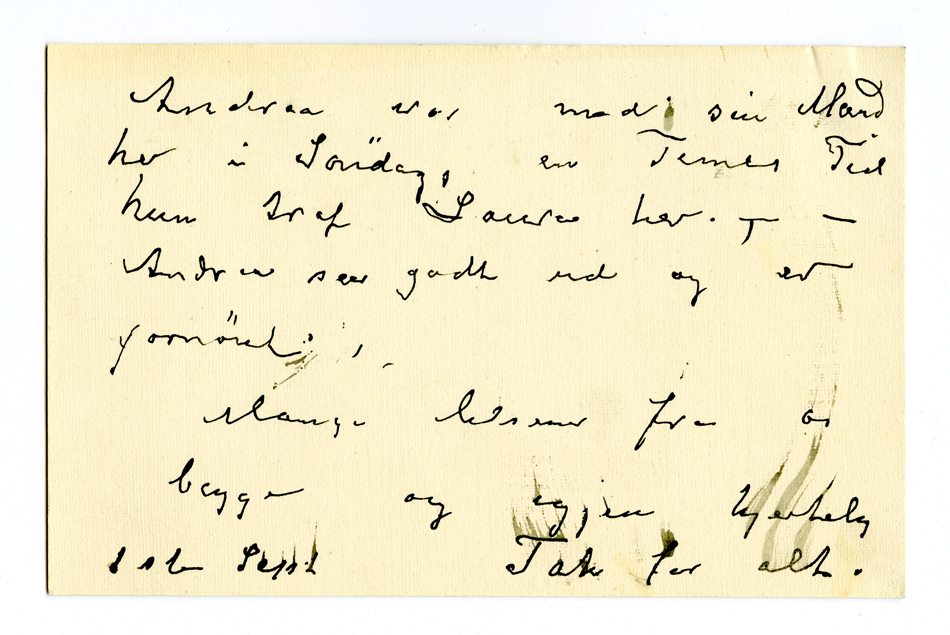 Andrea var med sin Mand
her i Söndag, en Times Tid
hun traf Laura her. — —
Andrea ser godt ud og er
fornöiet.
Mange hilsener fra os
begge og igjen hjertelig
1ste Sept Tak for alt.